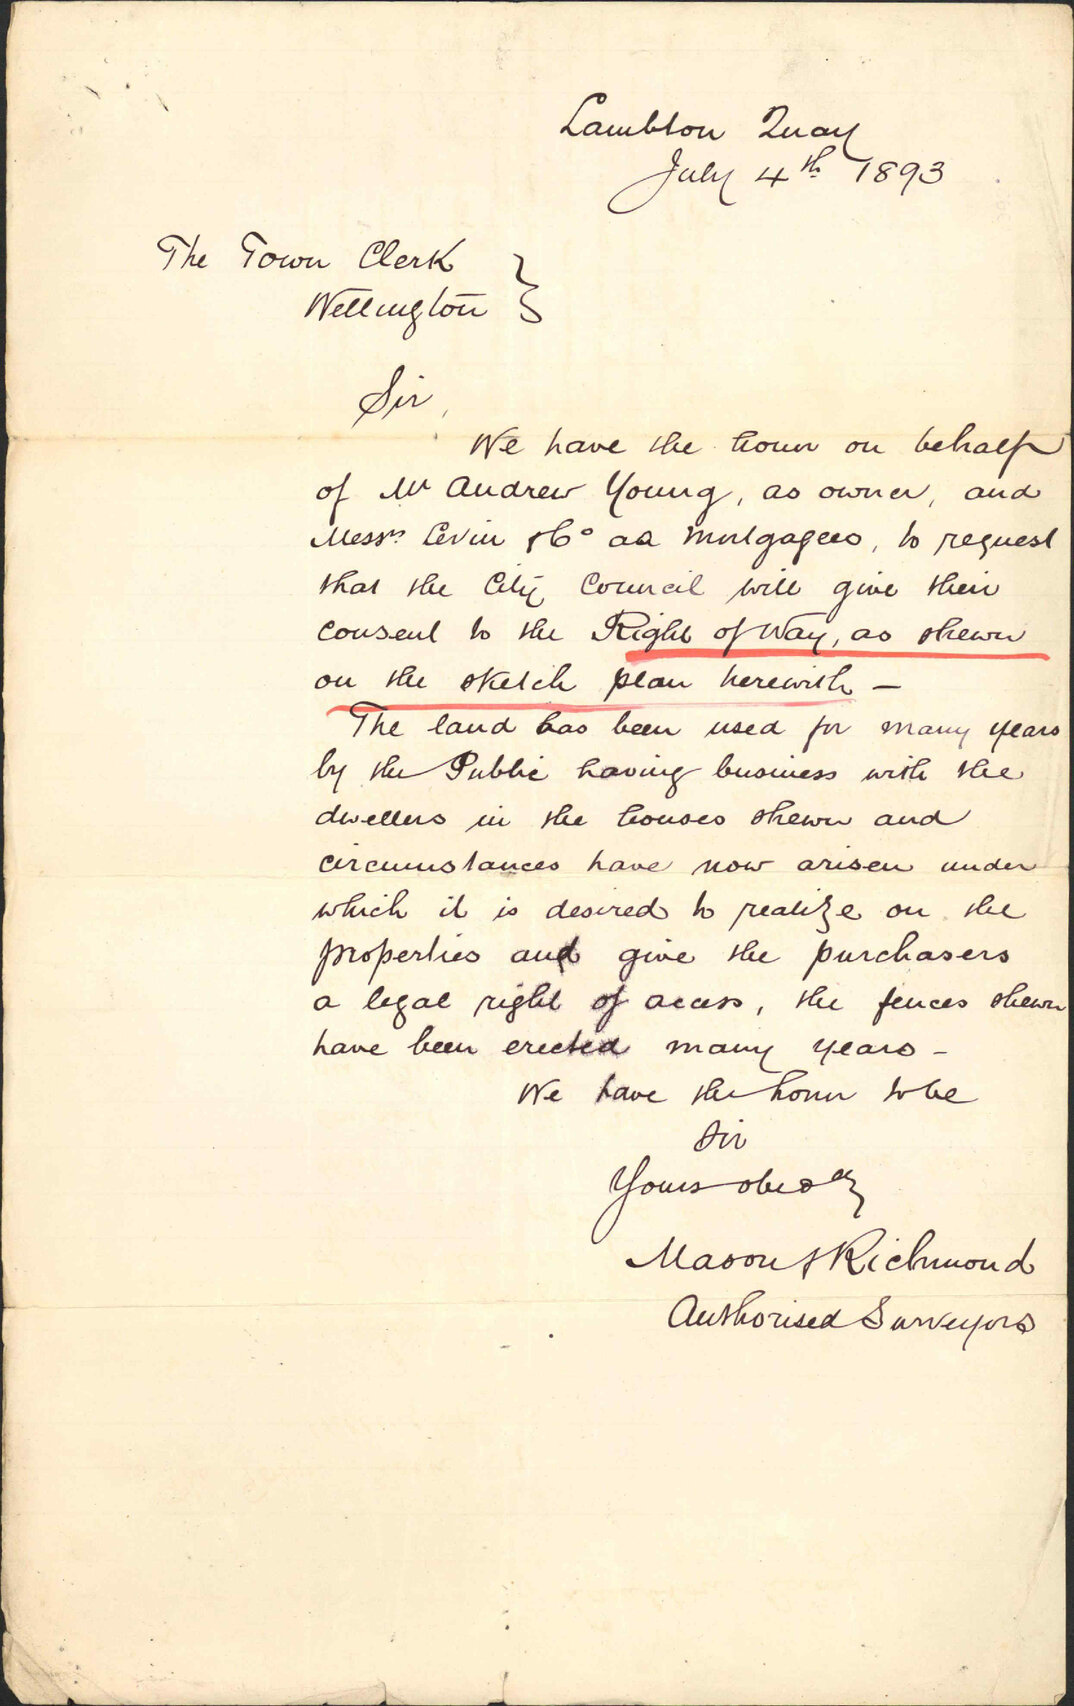 Lambton Quay
July 4th 1893
The Town Clerk
Wellington
Sir,
We have the honor on behalf
of Mr Andrew Young, as owner, and
Messrs Levin & Co as Mortgagees, to request
that the City Council will give their
consent to the Right of Way, as shewn
on the sketch plan herewith —
The land has been used for many years
by the Public having business with the
dwellers in the houses shewn and
circumstances have now arisen under
which it is desired to realize on the
properties and give the purchasers
a legal right of access, the fences shewn
have been erected many years —
We have the honor to be
Sir
Yours obedtly
Mason & Richmond
Authorised Surveyors